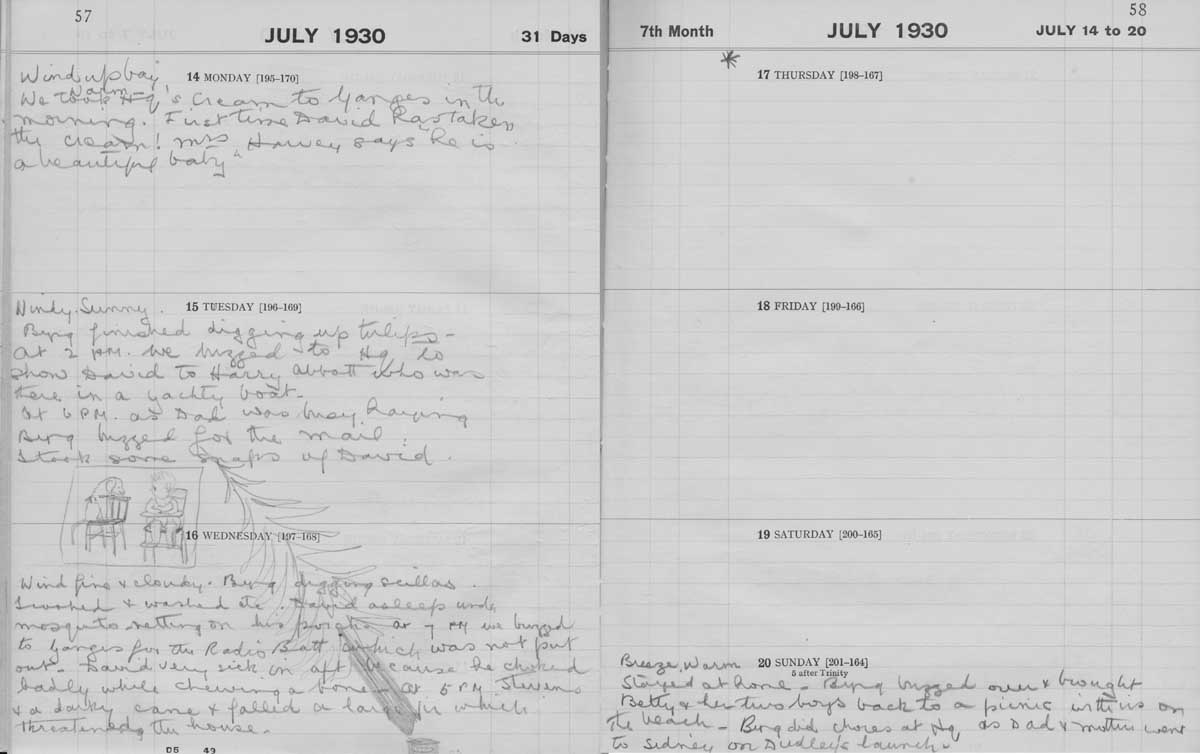 57
JULY 1930
31 Days
Wind up bay
14 MONDAY [195–170]
Warm –
We took Hq's cream to Ganges in the
morning. First time David has taken
the cream! Mrs Harvey says "he is
a beautiful baby"
Windy. Sunny.
15 TUESDAY [196–169]
Byng finished digging up tulips –
At 2 PM. we buzzed to Hq to
show David to Harry Abbott who was
here in a yachty boat –
At 6 PM. as Dad was busy haying
Byng buzzed for the mail.
I took some snaps of David.
16 WEDNESDAY [197–168]
Wind fine & cloudy. Byng digging scillas.
I washed & washed etc. David asleep under
mosquito netting on his porch. at 7 PM we buzzed
to Ganges for the Radio Batt which was not put
out – David very sick in aft because he choked
badly while chewing a bone – at 5 PM Stevens
& a darky came & falled a large fir which
threatened the house.
D5 49
58
7th Month
JULY 1930
JULY 14 to 20
*
17 THURSDAY [198–167]
18 FRIDAY [199–166]
19 SATURDAY [200–165]
Breeze, Warm
20 SUNDAY [201–164]
5 after Trinity
Stayed at home – Byng buzzed over & brought
Betty & her two boys back to a picnic with us on
the beach – Byng did chores at Hq as Dad & mother went
to Sidney on Dudley's launch.